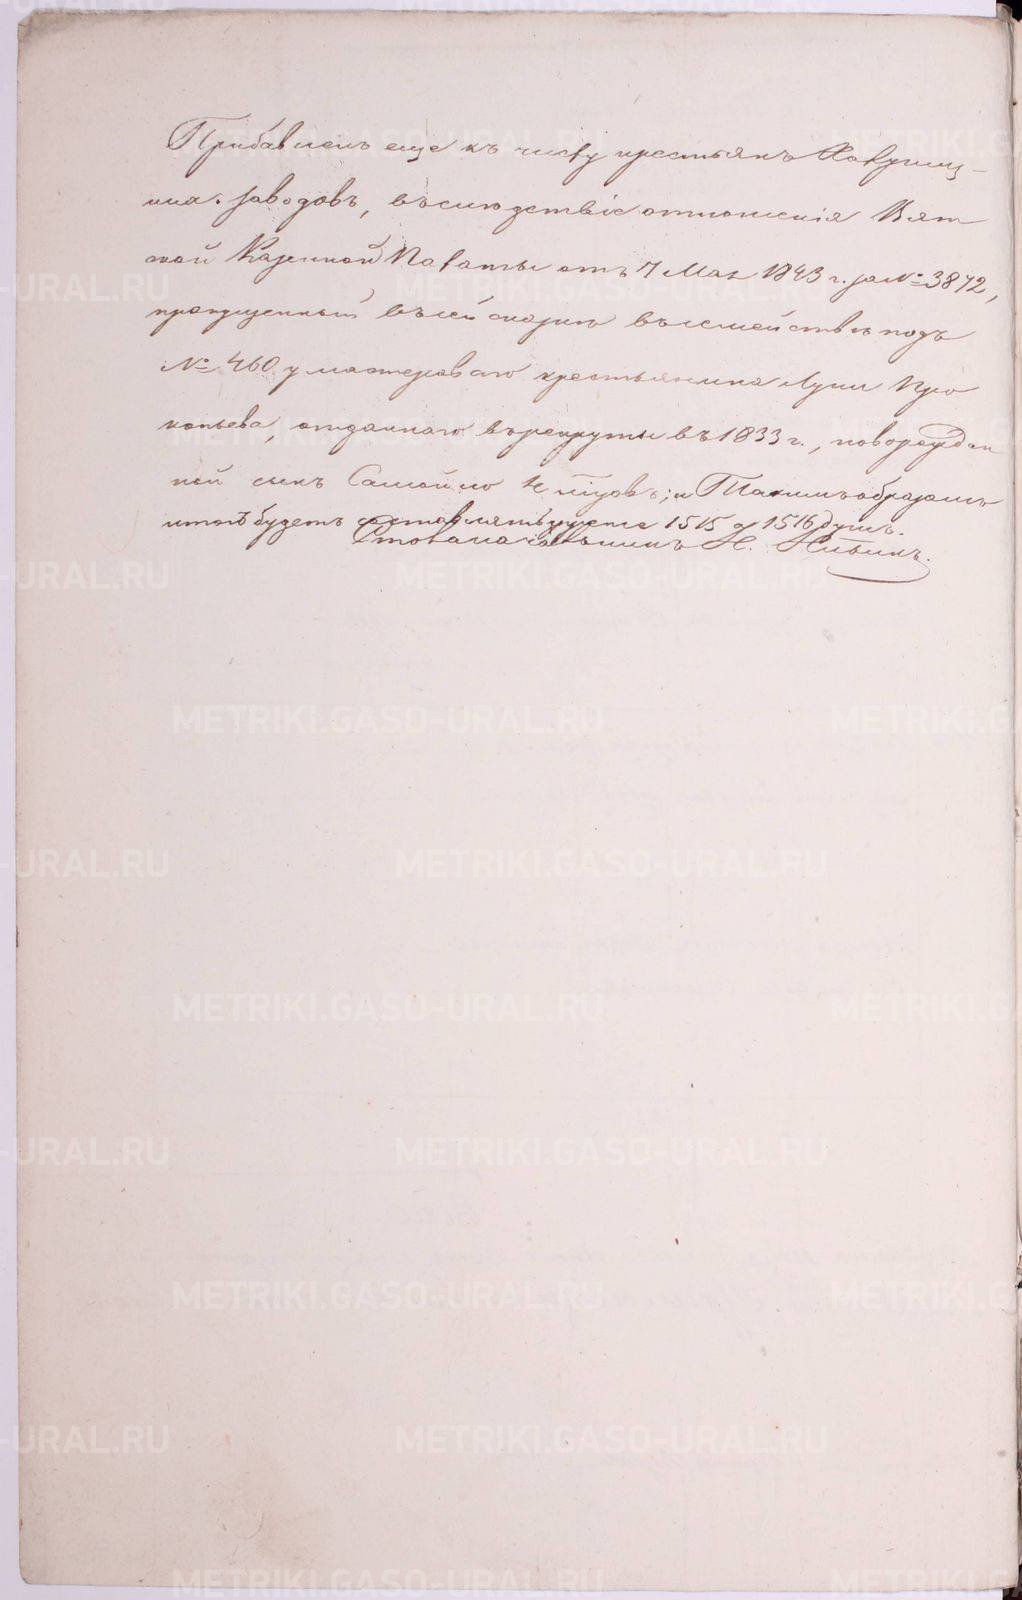 Прибавленъ еще къ числу крестьянъ
заводовъ, въ слѣдствіе отношенія Вят
ской Казенной Палаты отъ 7 Мая 1843 г. за № 3872,
пропущенный въ сей сказкѣ въ семействѣ подъ
№ 460 у мастероваго крестьянина Луки Про
копьева, отданнаго въ рекруты въ 1833 г., новорожден
ной сынъ Самойло и Такимъ образомъ
итогъ будетъ составлять вмѣсто 1515 1516 душъ.
Столоначальникъ Н.
METRIKI.GASO-URAL.RU